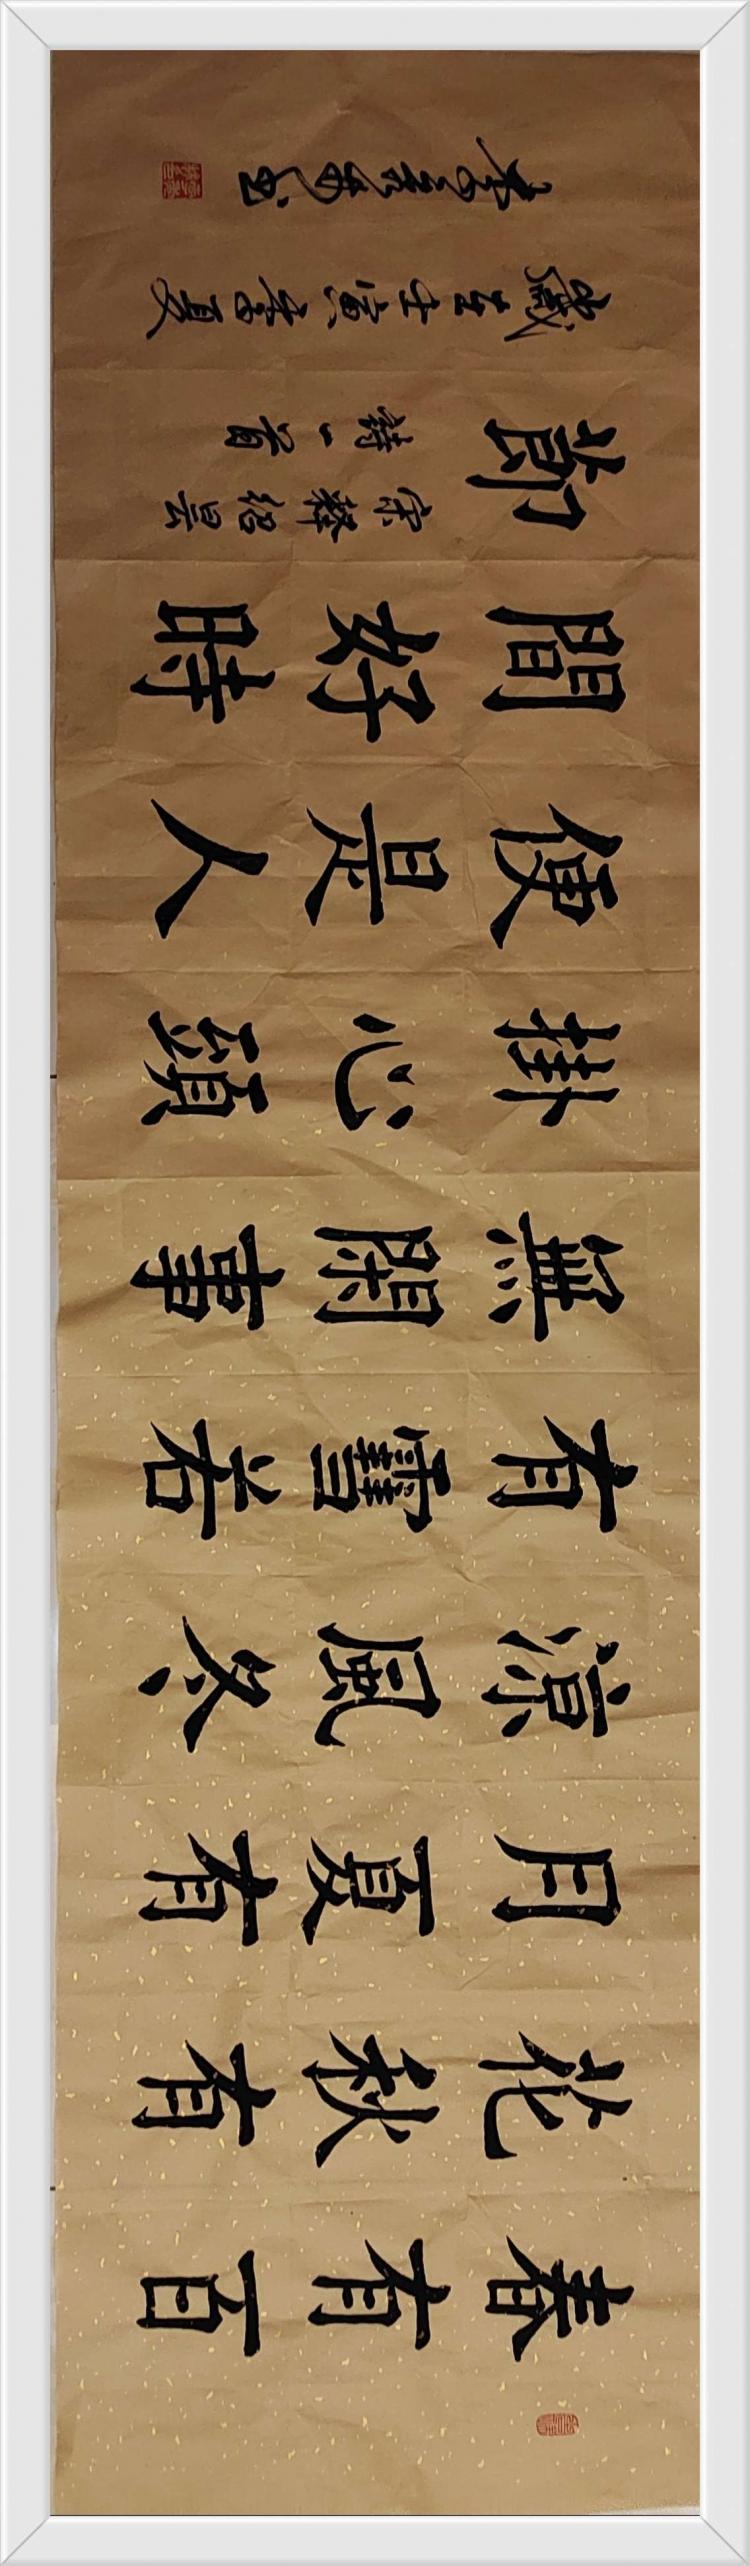 春有百
花秋有
月夏有
涼風冬
有雪若
無閑事
掛心頭
便是人
間好時
節
宋釋紹昙
詩一首
歲在壬寅夏